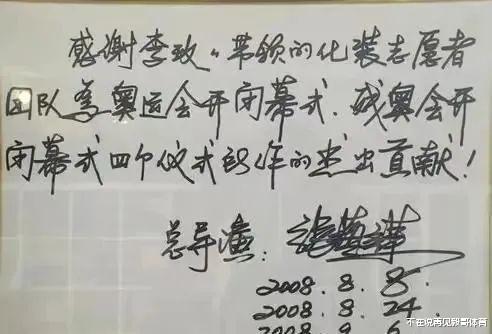 感谢李玫·带领的化装志愿者
团队为奥运会开闭幕式、残奥会开
闭幕式四个仪式所作的杰出贡献！
总导演：张艺谋
2008.8.8.
2008.8.24
2008.9.6
不在说再见毅哥体育